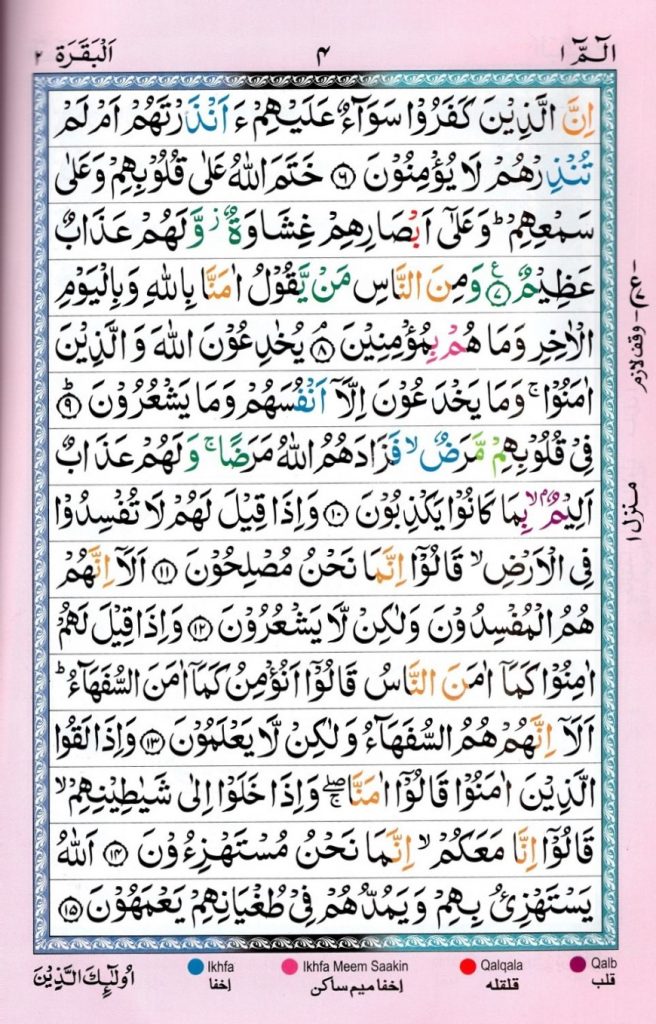 الٓمّٓ ١ ٤ اَلْبَقَرَة ٢
اِنَّ الَّذِيْنَ كَفَرُوْا سَوَآءٌ عَلَيْهِمْ ءَ اَنْذَرْتَهُمْ اَمْ لَمْ
تُنْذِرْهُمْ لَا يُؤْمِنُوْنَ ۝٦ خَتَمَ اللّٰهُ عَلٰى قُلُوْبِهِمْ وَعَلٰى
سَمْعِهِمْ ؕ وَعَلٰٓى اَبْصَارِهِمْ غِشَاوَةٌ ز وَّ لَهُمْ عَذَابٌ
عَظِيْمٌ ۝٧ ع وَمِنَ النَّاسِ مَنْ يَّقُوْلُ اٰمَنَّا بِاللّٰهِ وَبِالْيَوْمِ
الْاٰخِرِ وَمَا هُمْ بِمُؤْمِنِيْنَ ۝٨ۘ يُخٰدِعُوْنَ اللّٰهَ وَ الَّذِيْنَ
اٰمَنُوْا ۚ وَمَا يَخْدَعُوْنَ اِلَّآ اَنْفُسَهُمْ وَمَا يَشْعُرُوْنَ ۝٩ؕ
فِيْ قُلُوْبِهِمْ مَّرَضٌ ۙ فَزَادَهُمُ اللّٰهُ مَرَضًا ۚ وَلَهُمْ عَذَابٌ
اَلِيْمٌۢ ۙ بِمَا كَانُوْا يَكْذِبُوْنَ ۝١٠ وَاِذَا قِيْلَ لَهُمْ لَا تُفْسِدُوْا
فِي الْاَرْضِ ۙ قَالُوْٓا اِنَّمَا نَحْنُ مُصْلِحُوْنَ ۝١١ اَلَآ اِنَّهُمْ
هُمُ الْمُفْسِدُوْنَ وَلٰكِنْ لَّا يَشْعُرُوْنَ ۝١٢ وَاِذَا قِيْلَ لَهُمْ
اٰمِنُوْا كَمَآ اٰمَنَ النَّاسُ قَالُوْٓا اَنُؤْمِنُ كَمَآ اٰمَنَ السُّفَهَآءُ ؕ
اَلَآ اِنَّهُمْ هُمُ السُّفَهَآءُ وَلٰكِنْ لَّا يَعْلَمُوْنَ ۝١٣ وَاِذَا لَقُوا
الَّذِيْنَ اٰمَنُوْا قَالُوْٓا اٰمَنَّا ۖۚ وَاِذَا خَلَوْا اِلٰى شَيٰطِيْنِهِمْ ۙ
قَالُوْٓا اِنَّا مَعَكُمْ ۙ اِنَّمَا نَحْنُ مُسْتَهْزِءُوْنَ ۝١٤ اَللّٰهُ
يَسْتَهْزِئُ بِهِمْ وَيَمُدُّهُمْ فِيْ طُغْيَانِهِمْ يَعْمَهُوْنَ ۝١٥
وقف لازم
منزل ١
اُولٰٓئِكَ الَّذِيْنَ
Ikhfa Ikhfa Meem Saakin Qalqala Qalb
اِخفا اِخفا میم ساکن قلقله قلب